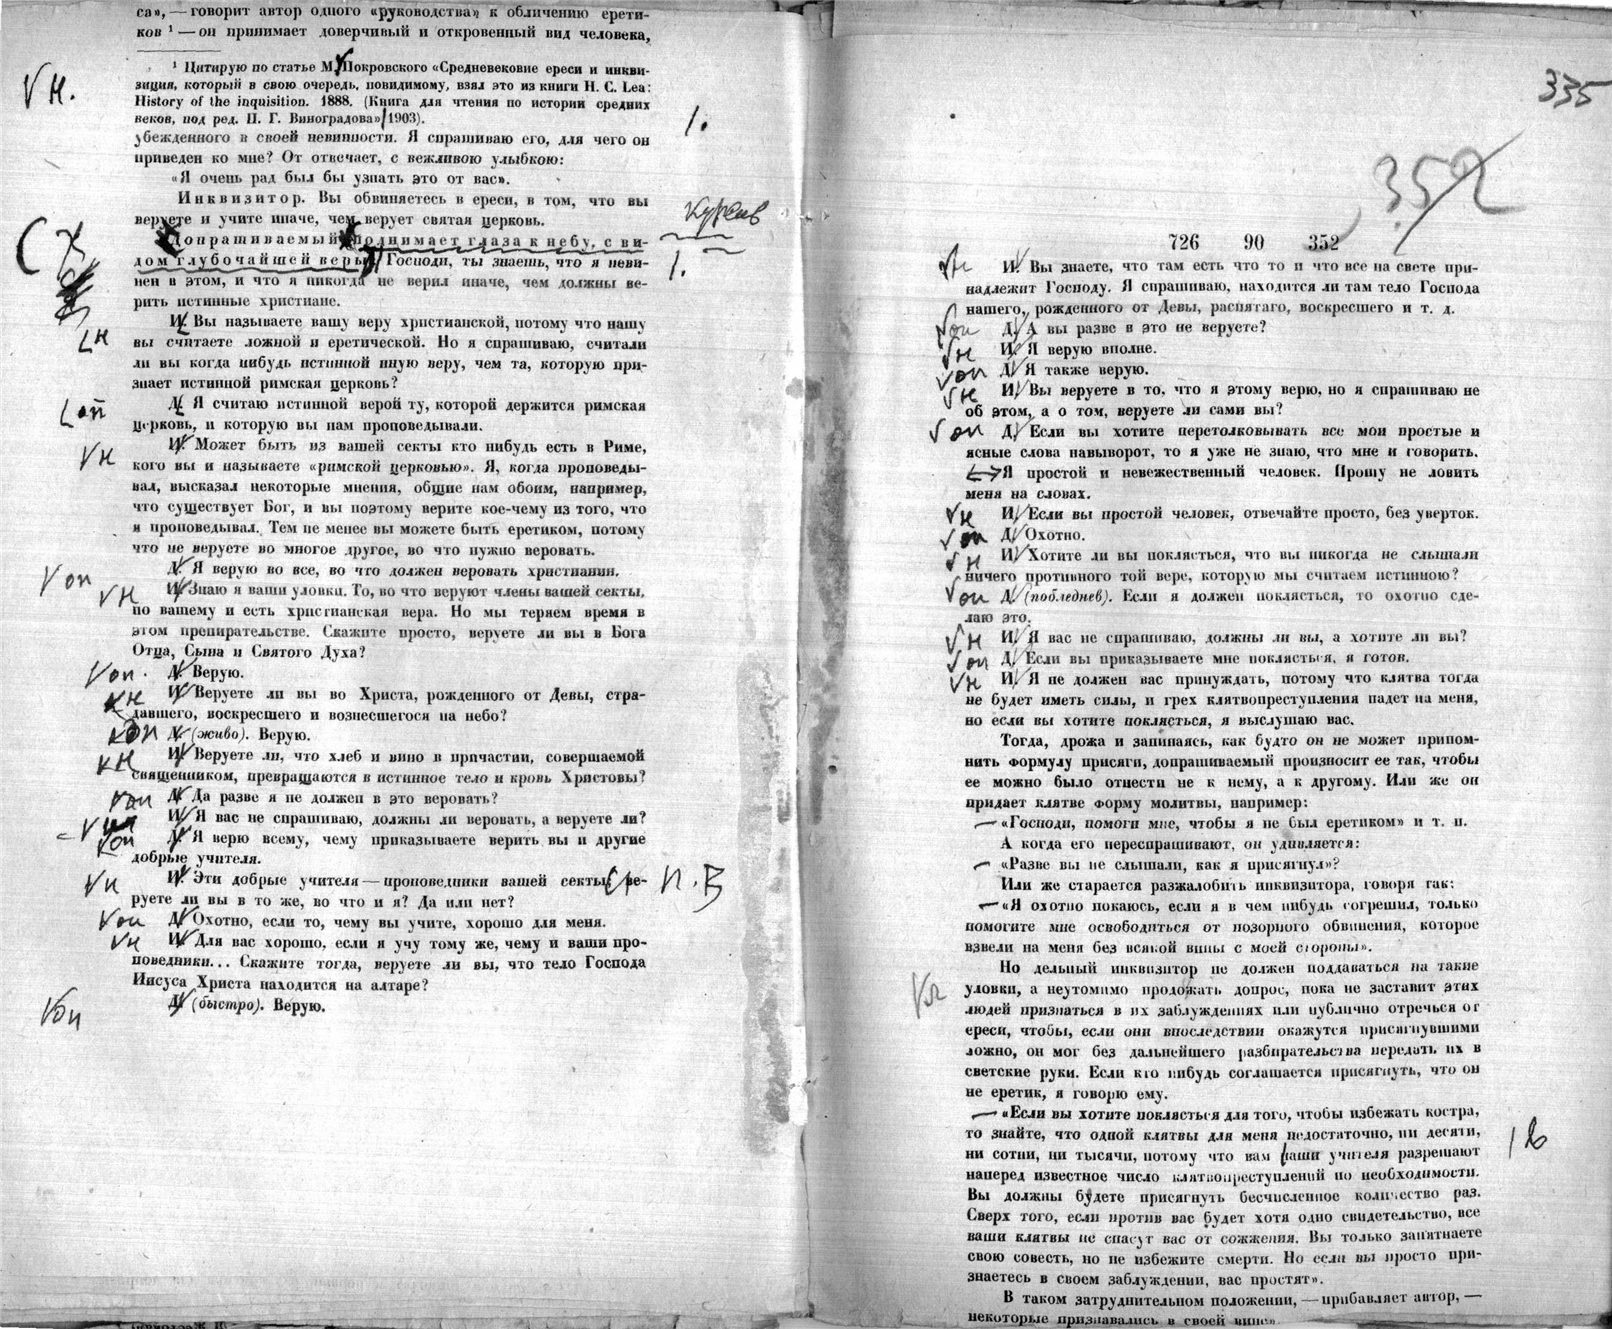 са», — говорит автор одного «руководства» к обличению ерети-
ков ¹ — он принимает доверчивый и откровенный вид человека,
¹ Цитирую по статье М. Покровского «Средневековие ереси и инкви-
зиция, который в свою очередь, повидимому, взял это из книги H. C. Lea:
History of the inquisition. 1888. (Книга для чтения по истории средних
веков, под ред. П. Г. Виноградова» 1903).
убежденного в своей невинности. Я спрашиваю его, для чего он
приведен ко мне? От отвечает, с вежливою улыбкою:
«Я очень рад был бы узнать это от вас».
Инквизитор. Вы обвиняетесь в ереси, в том, что вы
веруете и учите иначе, чем верует святая церковь.
Допрашиваемый поднимает глаза к небу, с ви-
дом глубочайшей веры Господи, ты знаешь, что я неви-
нен в этом, и что я никогда не верил иначе, чем должны ве-
рить истинные христиане.
И. Вы называете вашу веру христианской, потому что нашу
вы считаете ложной и еретической. Но я спрашиваю, считали
ли вы когда нибудь истинной иную веру, чем та, которую при-
знает истинной римская церковь?
Д. Я считаю истинной верой ту, которой держится римская
церковь, и которую вы нам проповедывали.
И. Может быть из вашей секты кто нибудь есть в Риме,
кого вы и называете «римской церковью». Я, когда проповеды-
вал, высказал некоторые мнения, общие нам обоим, например,
что существует Бог, и вы поэтому верите кое-чему из того, что
я проповедывал. Тем не менее вы можете быть еретиком, потому
что не веруете во многое другое, во что нужно веровать.
Д. Я верую во все, во что должен веровать христианин.
И. Знаю я ваши уловки. То, во что веруют члены вашей секты,
по вашему и есть христианская вера. Но мы теряем время в
этом препирательстве. Скажите просто, веруете ли вы в Бога
Отца, Сына и Святого Духа?
Д. Верую.
И. Веруете ли вы во Христа, рожденного от Девы, стра-
давшего, воскресшего и вознесшегося на небо?
Д. (живо). Верую.
И. Веруете ли, что хлеб и вино в причастии, совершаемой
священником, превращаются в истинное тело и кровь Христовы?
Д. Да разве я не должен в это веровать?
И. Я вас не спрашиваю, должны ли веровать, а веруете ли?
Д. Я верю всему, чему приказываете верить вы и другие
добрые учителя.
И. Эти добрые учителя — проповедники вашей секты ве-
руете ли вы в то же, во что и я? Да или нет?
Д. Охотно, если то, чему вы учите, хорошо для меня.
И. Для вас хорошо, если я учу тому же, чему и ваши про-
поведники... Скажите тогда, веруете ли вы, что тело Господа
Иисуса Христа находится на алтаре?
Д. (быстро). Верую.
V н.
1.
курсив
1.
н
оп
V н
V оп
V н
V оп.
н
V оп
V н
V оп
V н
V оп
п. В
335
352
726 90 352
И. Вы знаете, что там есть что то и что все на свете при-
надлежит Господу. Я спрашиваю, находится ли там тело Господа
нашего, рожденного от Девы, распятаго, воскресшего и т. д.
Д. А вы разве в это не веруете?
И. Я верую вполне.
Д. Я также верую.
И. Вы веруете в то, что я этому верю, но я спрашиваю не
об этом, а о том, веруете ли сами вы?
Д. Если вы хотите перетолковывать все мои простые и
ясные слова навыворот, то я уже не знаю, что мне и говорить.
Я простой и невежественный человек. Прошу не ловить
меня на словах.
И. Если вы простой человек, отвечайте просто, без уверток.
Д. Охотно.
И. Хотите ли вы поклясться, что вы никогда не слышали
ничего противного той вере, которую мы считаем истинною?
Д. (побледнев). Если я должен поклясться, то охотно сде-
лаю это.
И. Я вас не спрашиваю, должны ли вы, а хотите ли вы?
Д. Если вы приказываете мне поклясться, я готов.
И. Я не должен вас принуждать, потому что клятва тогда
не будет иметь силы, и грех клятвопреступления падет на меня,
но если вы хотите поклясться, я выслушаю вас.
Тогда, дрожа и запинаясь, как будто он не может припом-
нить формулу присяги, допрашиваемый произносит ее так, чтобы
ее можно было отнести не к нему, а к другому. Или же он
придает клятве форму молитвы, например:
— «Господи, помоги мне, чтобы я не был еретиком» и т. п.
А когда его переспрашивают, он удивляется:
— «Разве вы не слышали, как я присягнул»?
Или же старается разжалобить инквизитора, говоря так:
— «Я охотно покаюсь, если я в чем нибудь согрешил, только
помогите мне освободиться от позорного обвинения, которое
взвели на меня без всякой вины с моей стороны».
Но дельный инквизитор не должен поддаваться на такие
уловки, а неутомимо продожать допрос, пока не заставит этих
людей признаться в их заблуждениях или публично отречься от
ереси, чтобы, если они впоследствии окажутся присягнувшими
ложно, он мог без дальнейшего разбирательства передать их в
светские руки. Если кто нибудь соглашается присягнуть, что он
не еретик, я говорю ему.
— «Если вы хотите поклясться для того, чтобы избежать костра,
то знайте, что одной клятвы для меня недостаточно, ни десяти,
ни сотни, ни тысячи, потому что вам ваши учителя разрешают
наперед известное число клятвопреступлений по необходимости.
Вы должны будете присягнуть бесчисленное количество раз.
Сверх того, если против вас будет хотя одно свидетельство, все
ваши клятвы не спасут вас от сожжения. Вы только запятнаете
свою совесть, но не избежите смерти. Но если вы просто при-
знаетесь в своем заблуждении, вас простят».
В таком затруднительном положении, — прибавляет автор, —
некоторые признавались в своей вине»